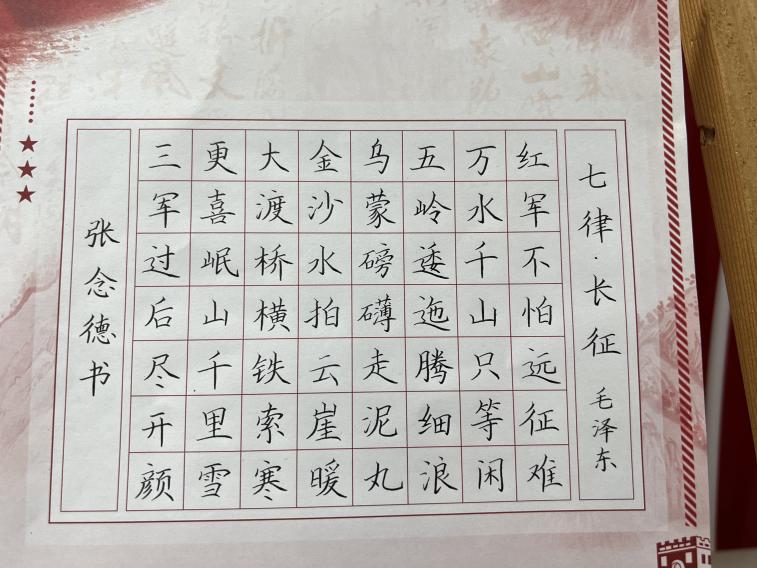 七律·长征 毛泽东
红军不怕远征难
万水千山只等闲
五岭逶迤腾细浪
乌蒙磅礴走泥丸
金沙水拍云崖暖
大渡桥横铁索寒
更喜岷山千里雪
三军过后尽开颜
张念德书